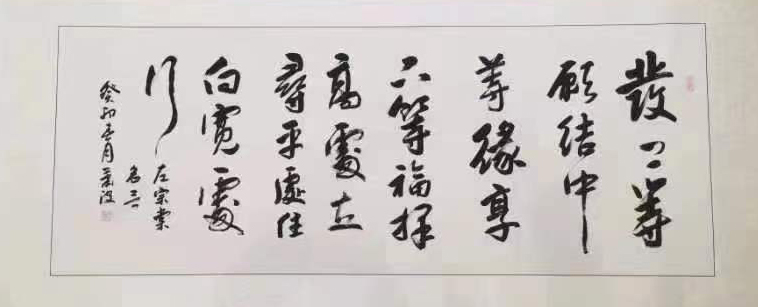 發上等
願結中
等緣享
下等福擇
高處立
尋平處住
向寬處
行
左宗棠
名言
癸卯月波